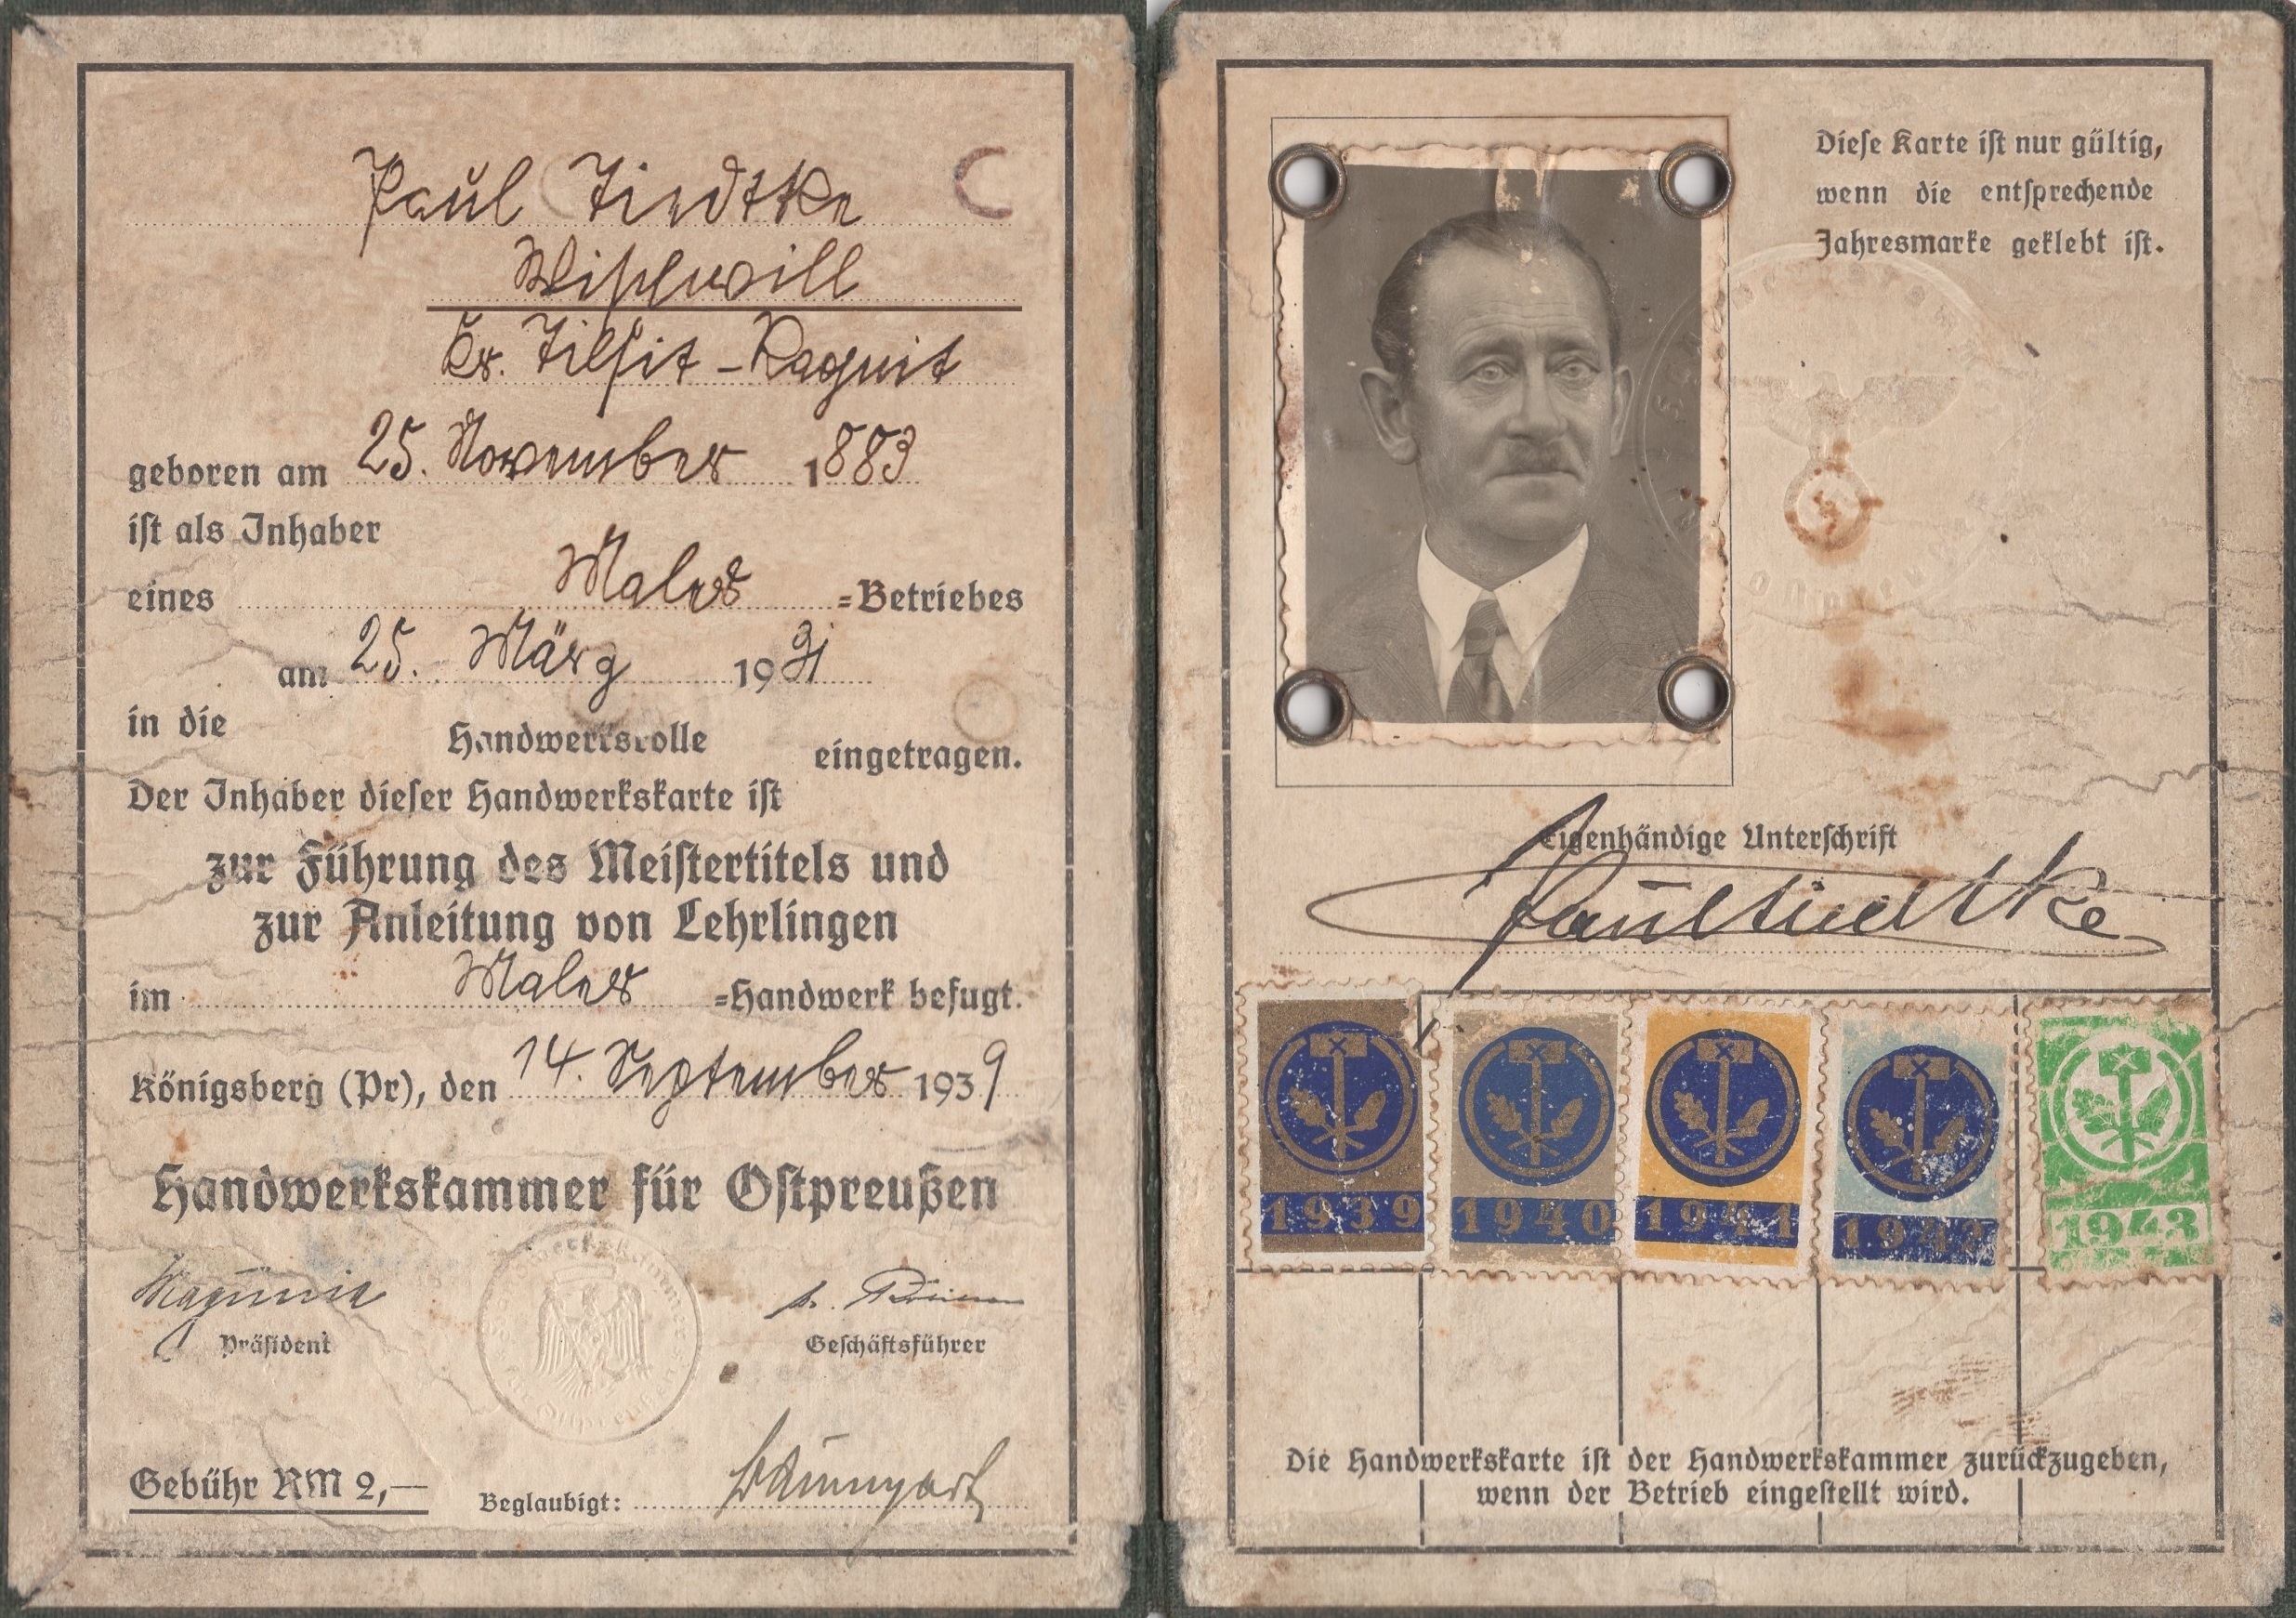 Paul Tiedtke
Wischwill
Kr. Tilsit-Ragnit
geboren am 25. November 1883
ist als Inhaber
eines Maler =Betriebes
am 25. März 1931
in die Handwerksrolle eingetragen.
Der Inhaber dieser Handwerkskarte ist
zur Führung des Meistertitels und
zur Anleitung von Lehrlingen
im Maler =Handwerk befugt.
Königsberg (Pr), den 14. September 1939
Handwerkskammer für Ostpreußen
Präsident
Geschäftsführer
Gebühr RM 2,—
Beglaubigt: Baumgart
Diese Karte ist nur gültig,
wenn die entsprechende
Jahresmarke geklebt ist.
Eigenhändige Unterschrift
Paul Tiedtke
1939 1940 1941 1942 1943
Die Handwerkskarte ist der Handwerkskammer zurückzugeben,
wenn der Betrieb eingestellt wird.